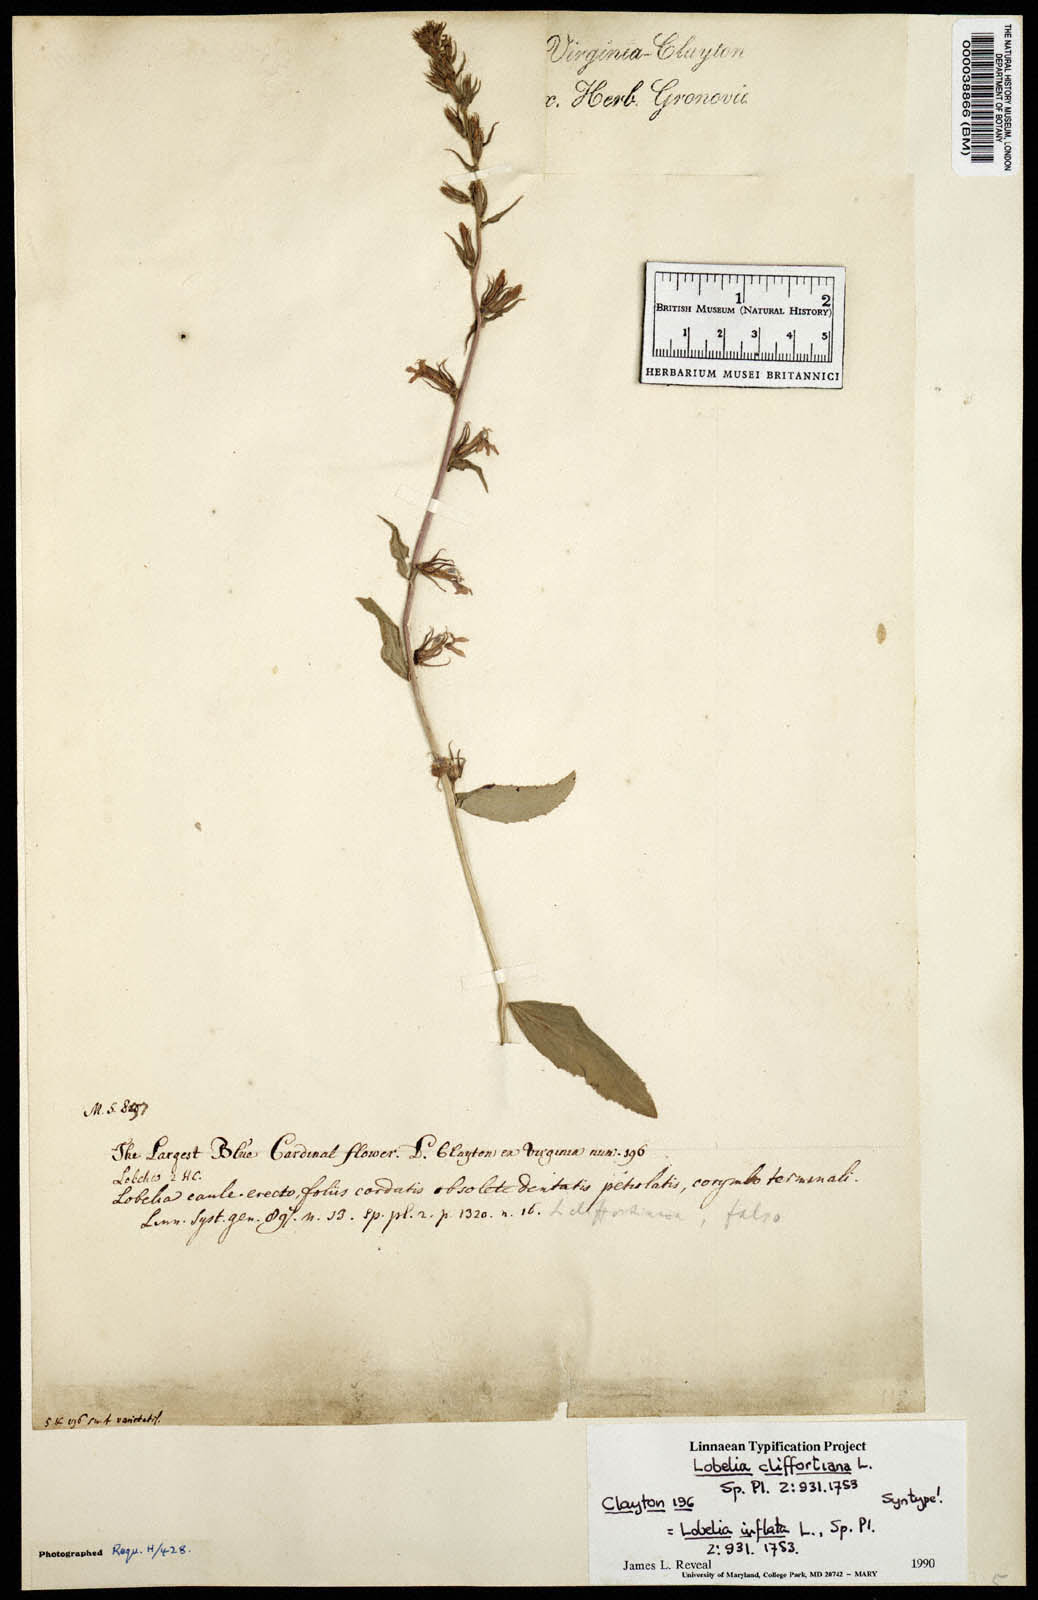 Virginia-Clayton
x. Herb. Gronovii
THE NATURAL HISTORY MUSEUM, LONDON
DEPARTMENT OF BOTANY
000038866 (BM)
1 2
BRITISH MUSEUM (NATURAL HISTORY)
1 2 3 4 5
HERBARIUM MUSEI BRITANNICI
M. S.
The Largest Blue Cardinal flower. D. Clayton ex Virginia num: 196
Lobelia 2 HC.
Lobelia caule erecto, foliis cordatis obsolete dentatis petiolatis, corymbo terminali.
Linn. Syst. gen. 897. n. 13. Sp. pl. 2. p. 1320. n. 16. L. cliffortiana, falso
196 varietatis.
Linnaean Typification Project
Lobelia cliffortiana L.
Sp. Pl. 2: 931. 1753
Clayton 196 Syntype!
= Lobelia inflata L., Sp. Pl.
2: 931. 1753.
James L. Reveal 1990
University of Maryland, College Park, MD 20742 – MARY
Photographed Requ. H/428.
5